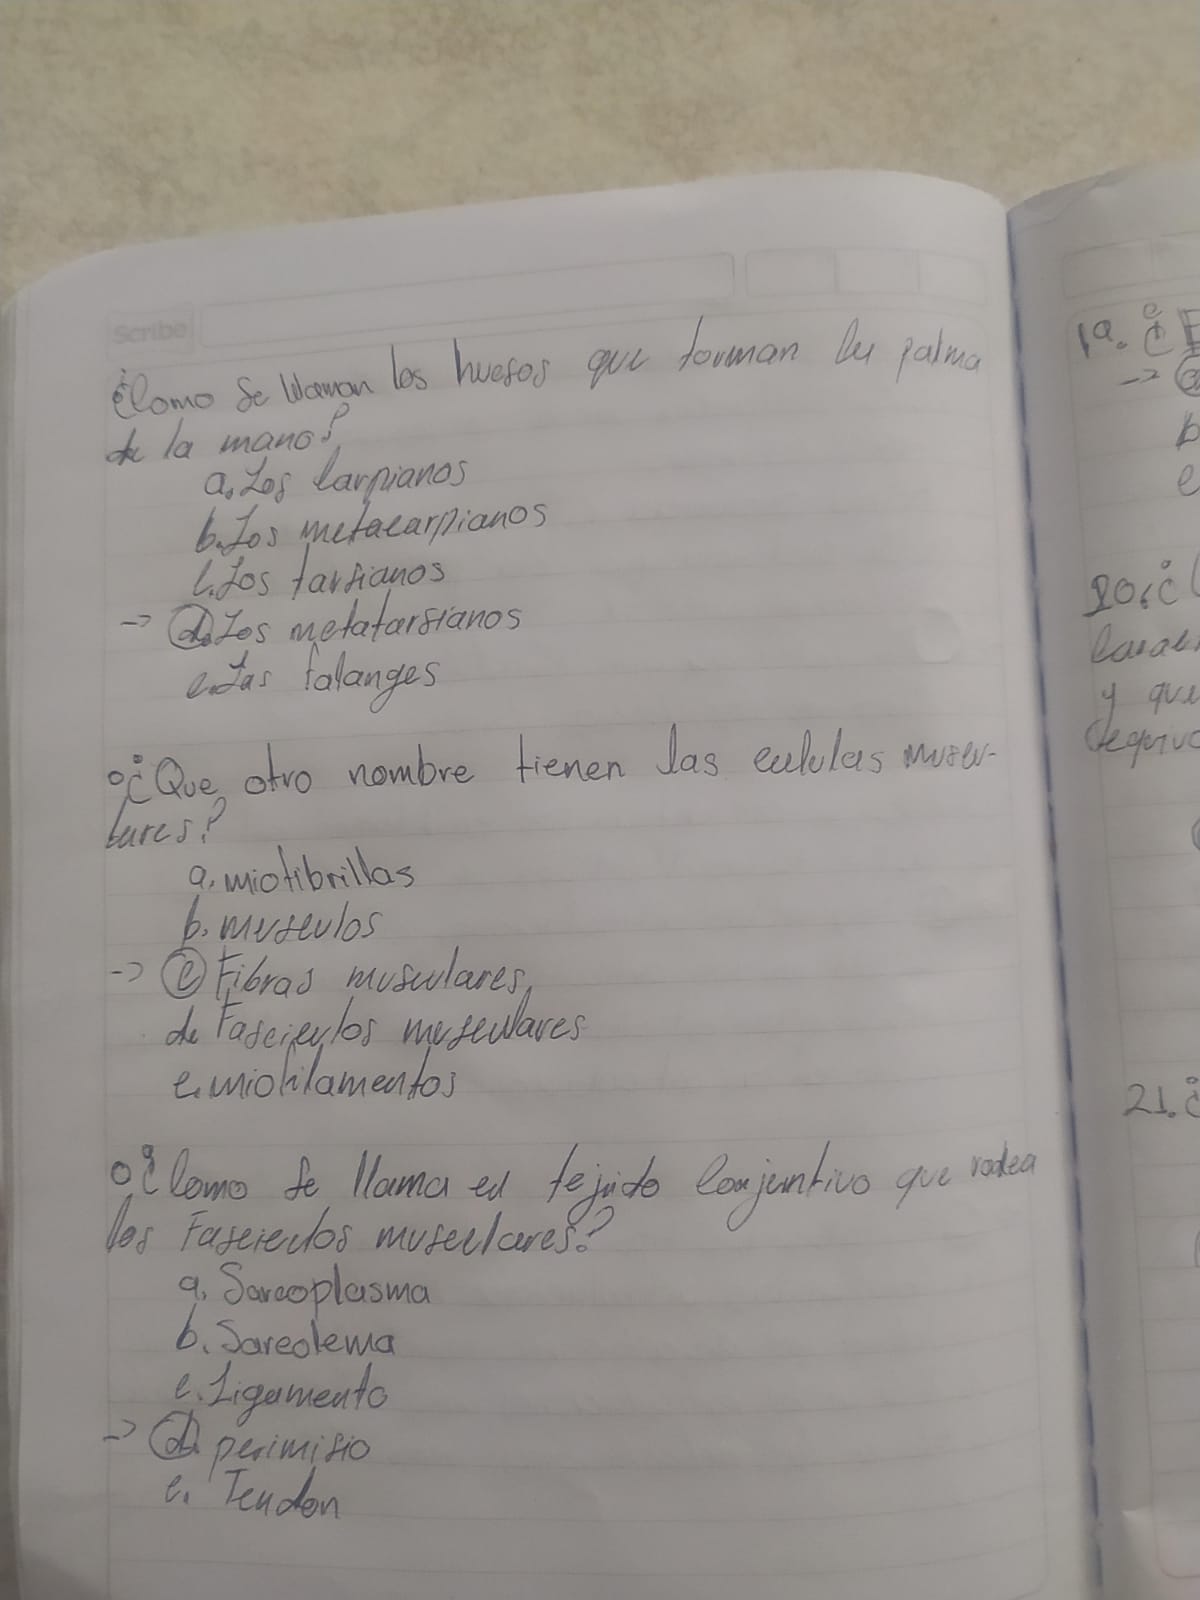 Scribe
¿Como se llaman los huesos que forman la palma
de la mano?
a. Los Carpianos
b. Los metacarpianos
c. Los tarsianos
-> d. Los metatarsianos
e. Las falanges
o ¿Que otro nombre tienen las celulas muscu-
lares?
a. miofibrillas
b. musculos
-> c Fibras musculares
d. Fasciculos musculares
e. miofilamentos
o ¿Como se llama el tejido Conjuntivo que rodea
los Fasciculos musculares?
a. Sarcoplasma
b. Sarcolema
c. Ligamento
-> d. perimisio
e. Tendon
19. ¿
->
b
c
20. ¿
y que
21. ¿